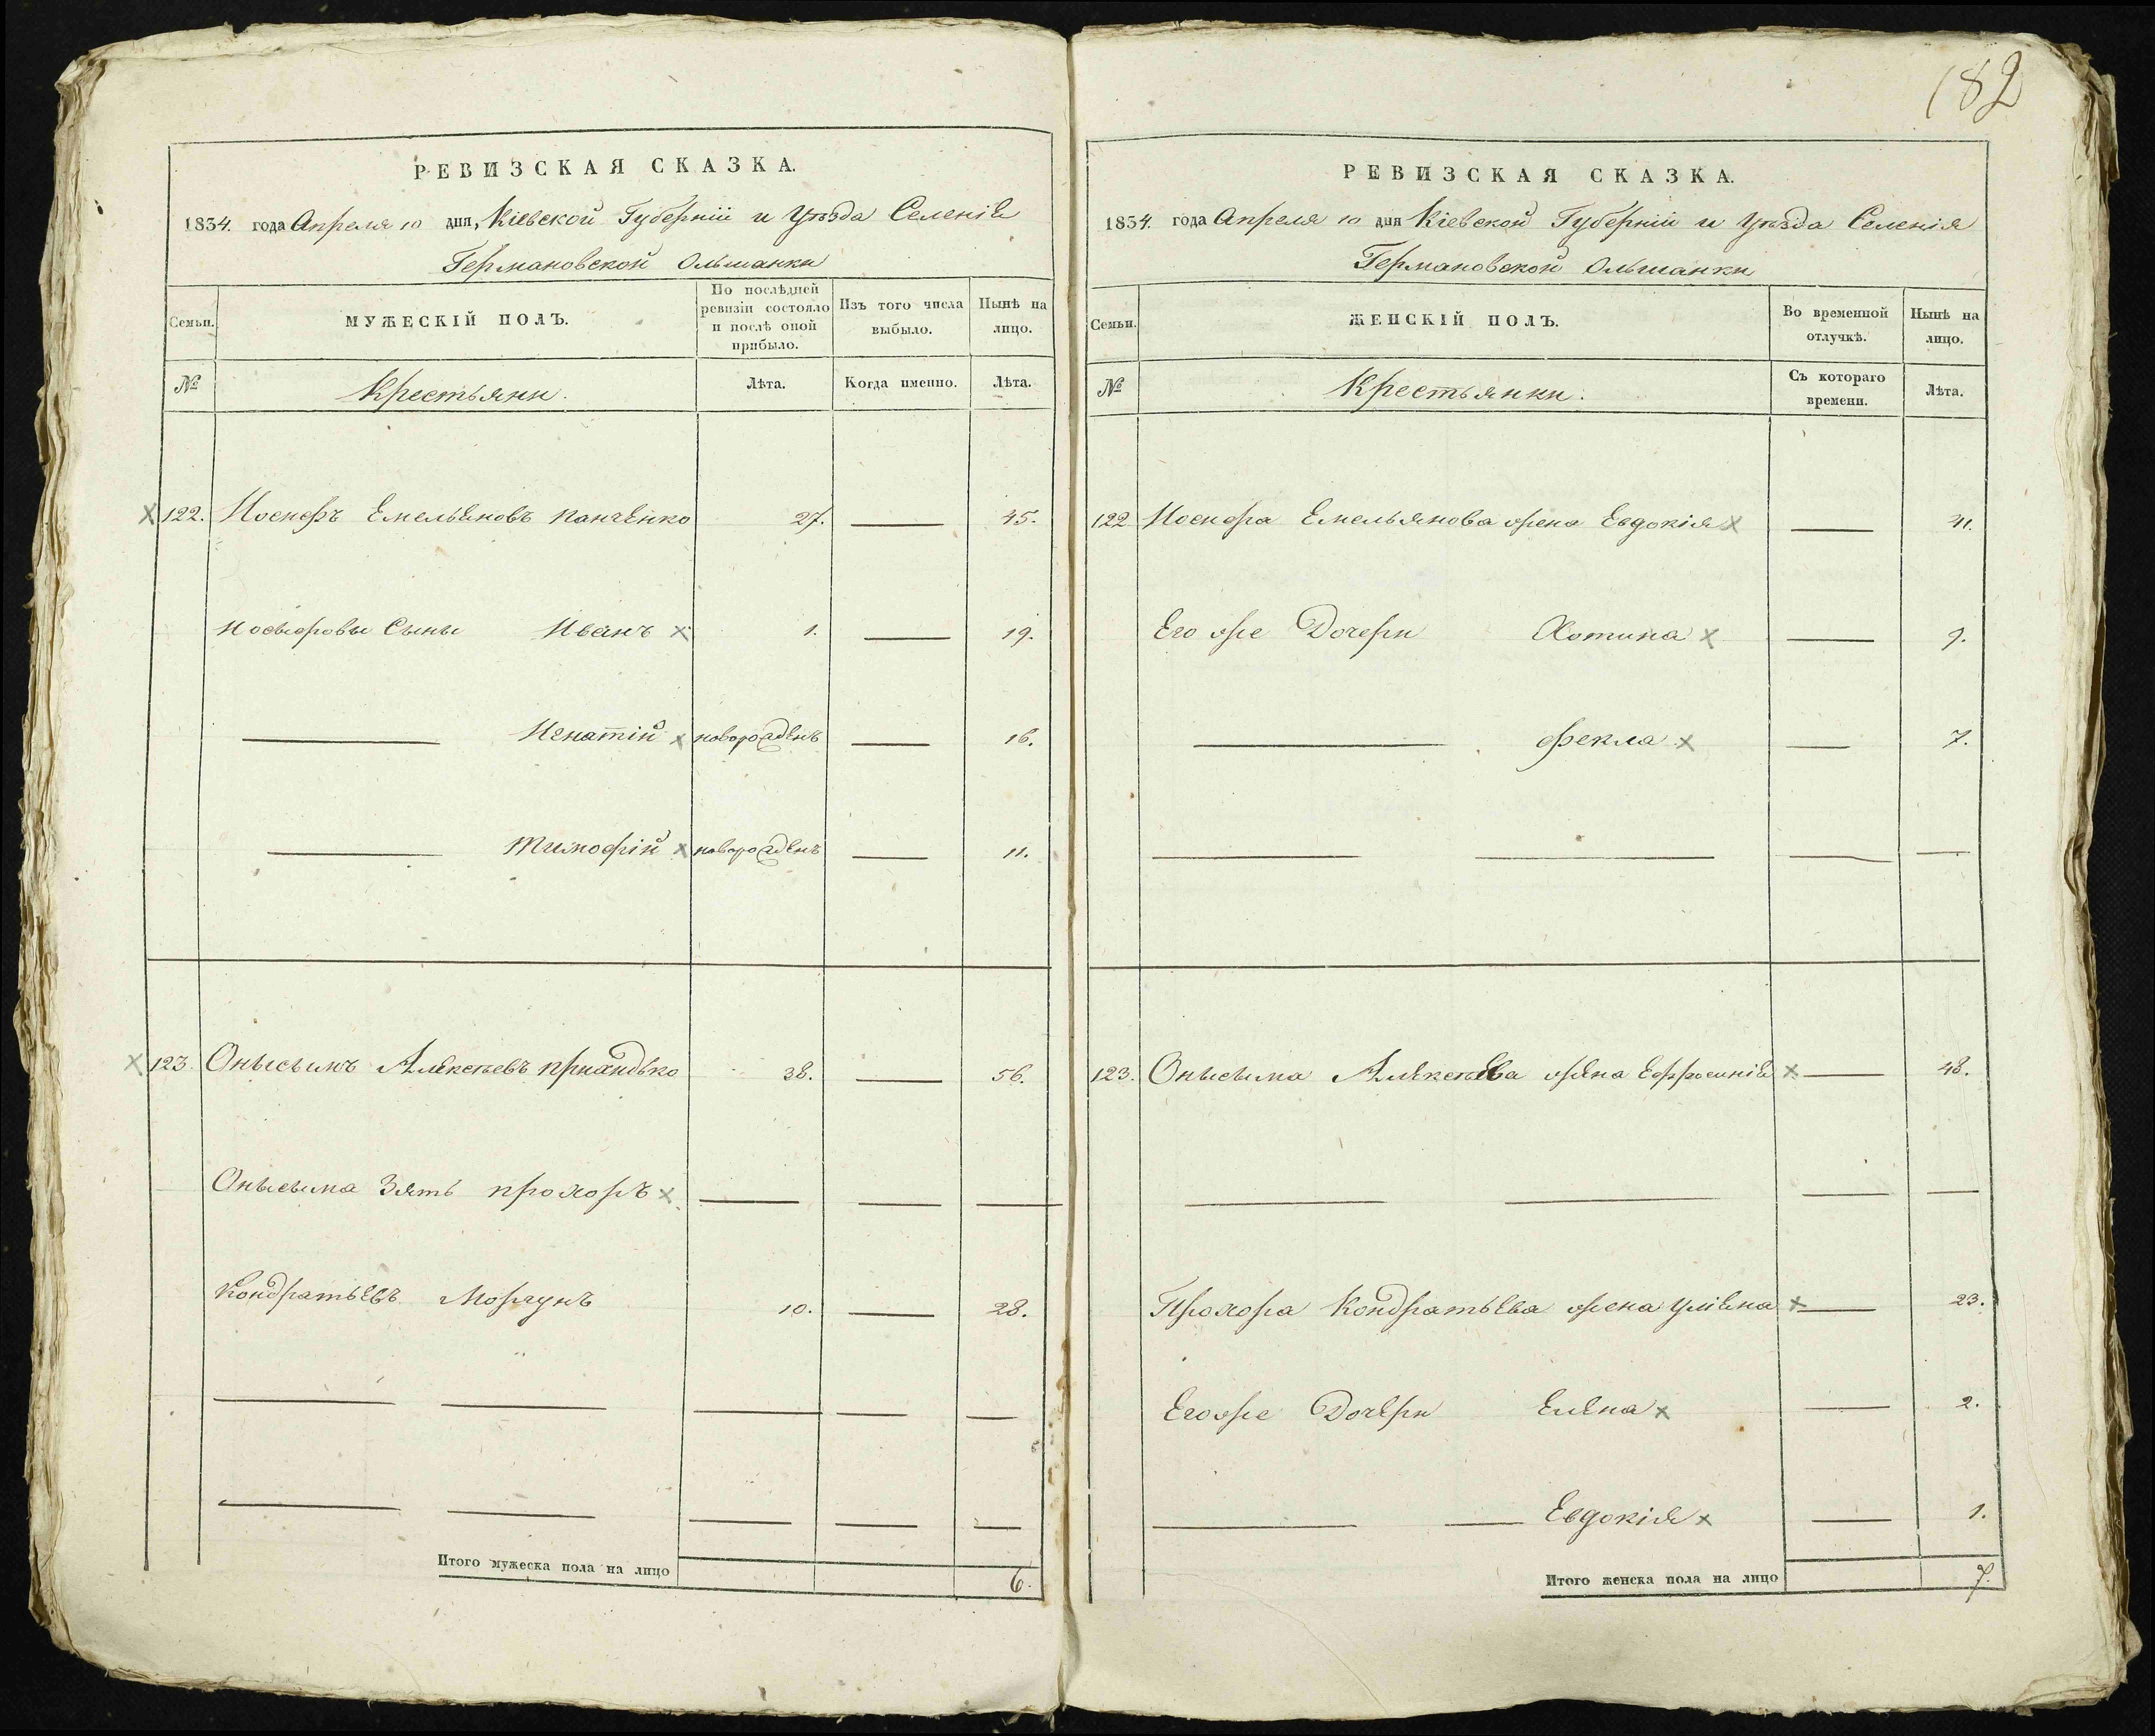 182
РЕВИЗСКАЯ СКАЗКА.
1834. года Апреля 10 дня, Кіевской Губерніи и Уѣзда Селенія
Германовской Ольшанки
Семьи.
МУЖЕСКІЙ ПОЛЪ.
По послѣдней ревизіи состояло и послѣ оной прибыло.
Изъ того числа выбыло.
Нынѣ на лицо.
№
Крестьяни.
Лѣта.
Когда именно.
Лѣта.
122. Иосифъ Емельяновъ Панченко 27. 45.
Иосыфовы Сыны Иванъ 1. 19.
Игнатій новорожденъ 16.
Тимофій новорожденъ 11.
123. Онысымъ Алексѣевъ 38. 56.
Онысыма Зять Прохоръ
Кондратьевъ Моргунъ 10. 28.
Итого мужеска пола на лицо 6.
РЕВИЗСКАЯ СКАЗКА.
1834. года Апреля 10 дня Кіевской Губерніи и Уѣзда Селенія
Германовской Ольшанки
Семьи.
ЖЕНСКІЙ ПОЛЪ.
Во временной отлучкѣ.
Нынѣ на лицо.
№
Крестьянки.
Съ котораго времени.
Лѣта.
122 Иосифа Емельянова жена Евдокія 41.
Его же Дочери Хотина 9.
Фекла 7.
123. Онысыма Алексѣева жена Ефросинія 48.
Прохора Кондратьева жена Уліяна 23.
Его же Дочери Елена 2.
Евдокія 1.
Итого женска пола на лицо 7.